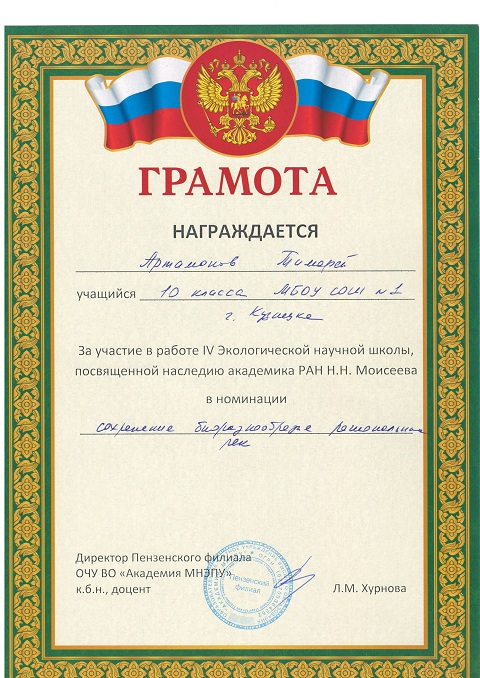 ГРАМОТА
НАГРАЖДАЕТСЯ
Артамонов Тимофей
учащийся 10 класса МБОУ СОШ №1
г. Кузнецка
За участие в работе IV Экологической научной школы,
посвященной наследию академика РАН Н.Н. Моисеева
в номинации
сохранение
рек
Директор Пензенского филиала
ОЧУ ВО «Академия МНЭПУ»
к.б.н., доцент Л.М. Хурнова
Пензенский
филиал